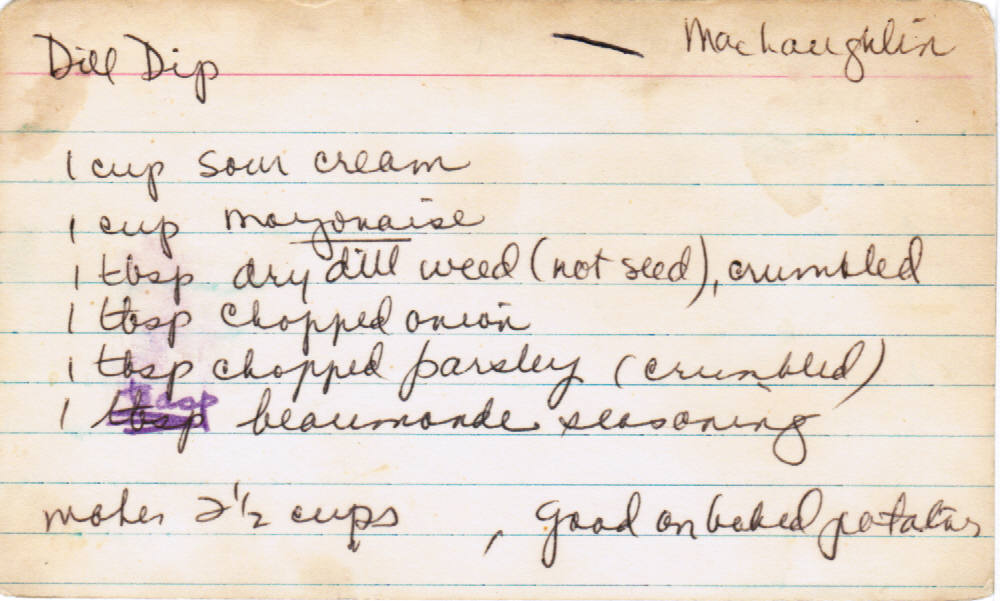 Dill Dip — MacLaughlin
1 cup sour cream
1 cup mayonaise
1 tbsp dry dill weed (not seed), crumbled
1 tbsp chopped onion
1 tbsp chopped parsley (crumbled)
1 teasp beaumonde seasoning
makes 2 1/2 cups , good on baked potatoes